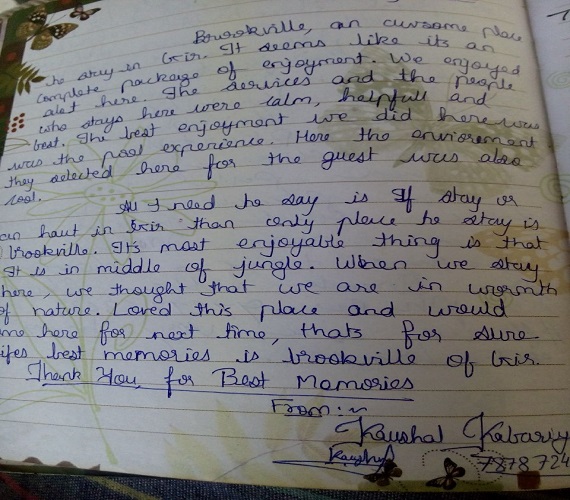 Brookville, an awsome place
to stay in Gir. It seems like its an
complete package of enjoyment. We enjoyed
alot here. The services and the people
who stays here were calm, helpfull and
best. The best enjoyment we did here was
was the pool experience. Here the enviorement
they selected here for the guest was also
cool.
All I need to say is If stay or
an hault in Gir than only place to stay is
brookville. It's most enjoyable thing is that
It is in middle of jungle. When we stay
here, we thought that we are in warmth
of nature. Loved this place and would
me here for next time, thats for sure
ifes best memories is brookville of Gir.
Thank You, for Best Memories
From:~
Kaushal Kabariy
7878724